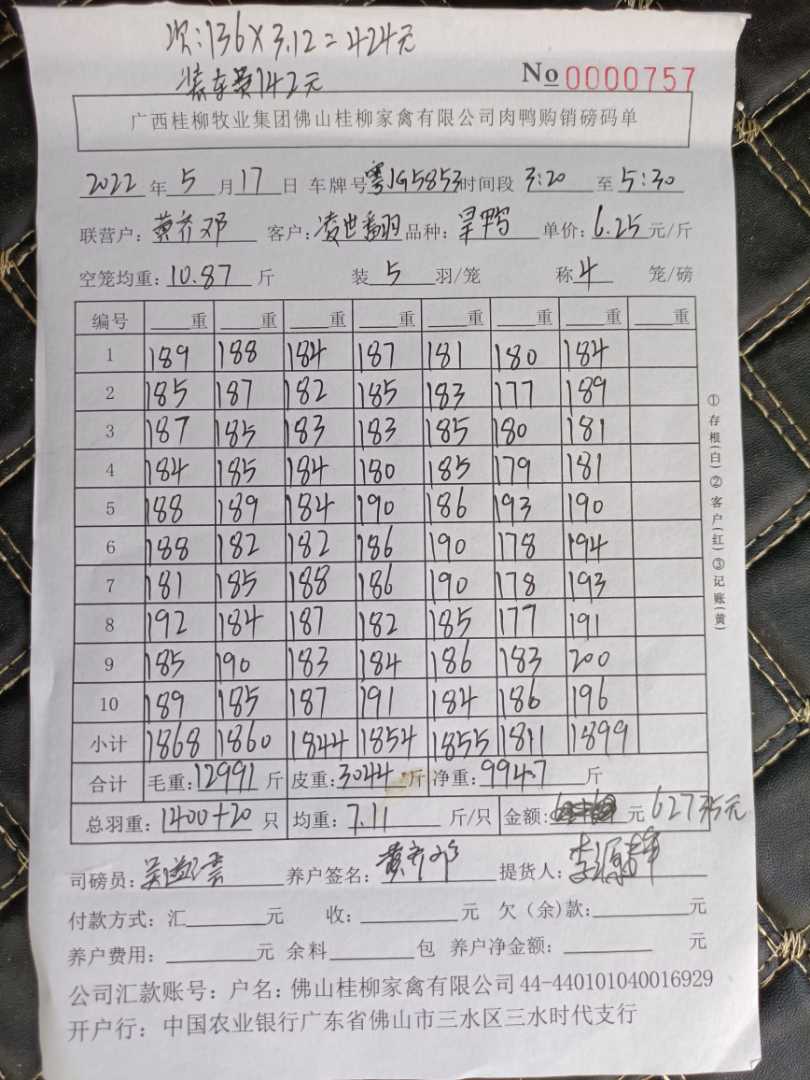 次:136×3.12=424元
装车费142元
No 0000757
广西桂柳牧业集团佛山桂柳家禽有限公司肉鸭购销磅码单
2022年5月17日 车牌号粤JG5853时间段 3:20 至5:30
联营户:黄齐邓 客户:凌世翻羽 品种:旱鸭 单价:6.25元/斤
空笼均重:10.87斤 装5羽/笼 称4笼/磅
编号 重 重 重 重 重 重 重 重
1 189 188 184 187 181 180 184
2 185 187 182 185 183 177 189
3 187 185 183 183 185 180 181
4 184 185 184 180 185 179 181
5 188 189 184 190 186 193 190
6 188 182 182 186 190 178 194
7 181 185 188 186 190 178 193
8 192 184 187 182 185 177 191
9 185 190 183 184 186 183 200
10 189 185 187 191 184 186 196
小计 1868 1860 1844 1854 1855 1811 1899
合计 毛重:12991斤 皮重:3044斤 净重:9947斤
总羽重:1400+20只 均重:7.11斤/只 金额: 元 62735元
司磅员: 养户签名:黄齐邓 提货人:
付款方式:汇 元 收: 元 欠(余)款: 元
养户费用: 元 余料 包 养户净金额: 元
公司汇款账号:户名:佛山桂柳家禽有限公司44-440101040016929
开户行:中国农业银行广东省佛山市三水区三水时代支行
①存根(白)②客户(红)③记账(黄)